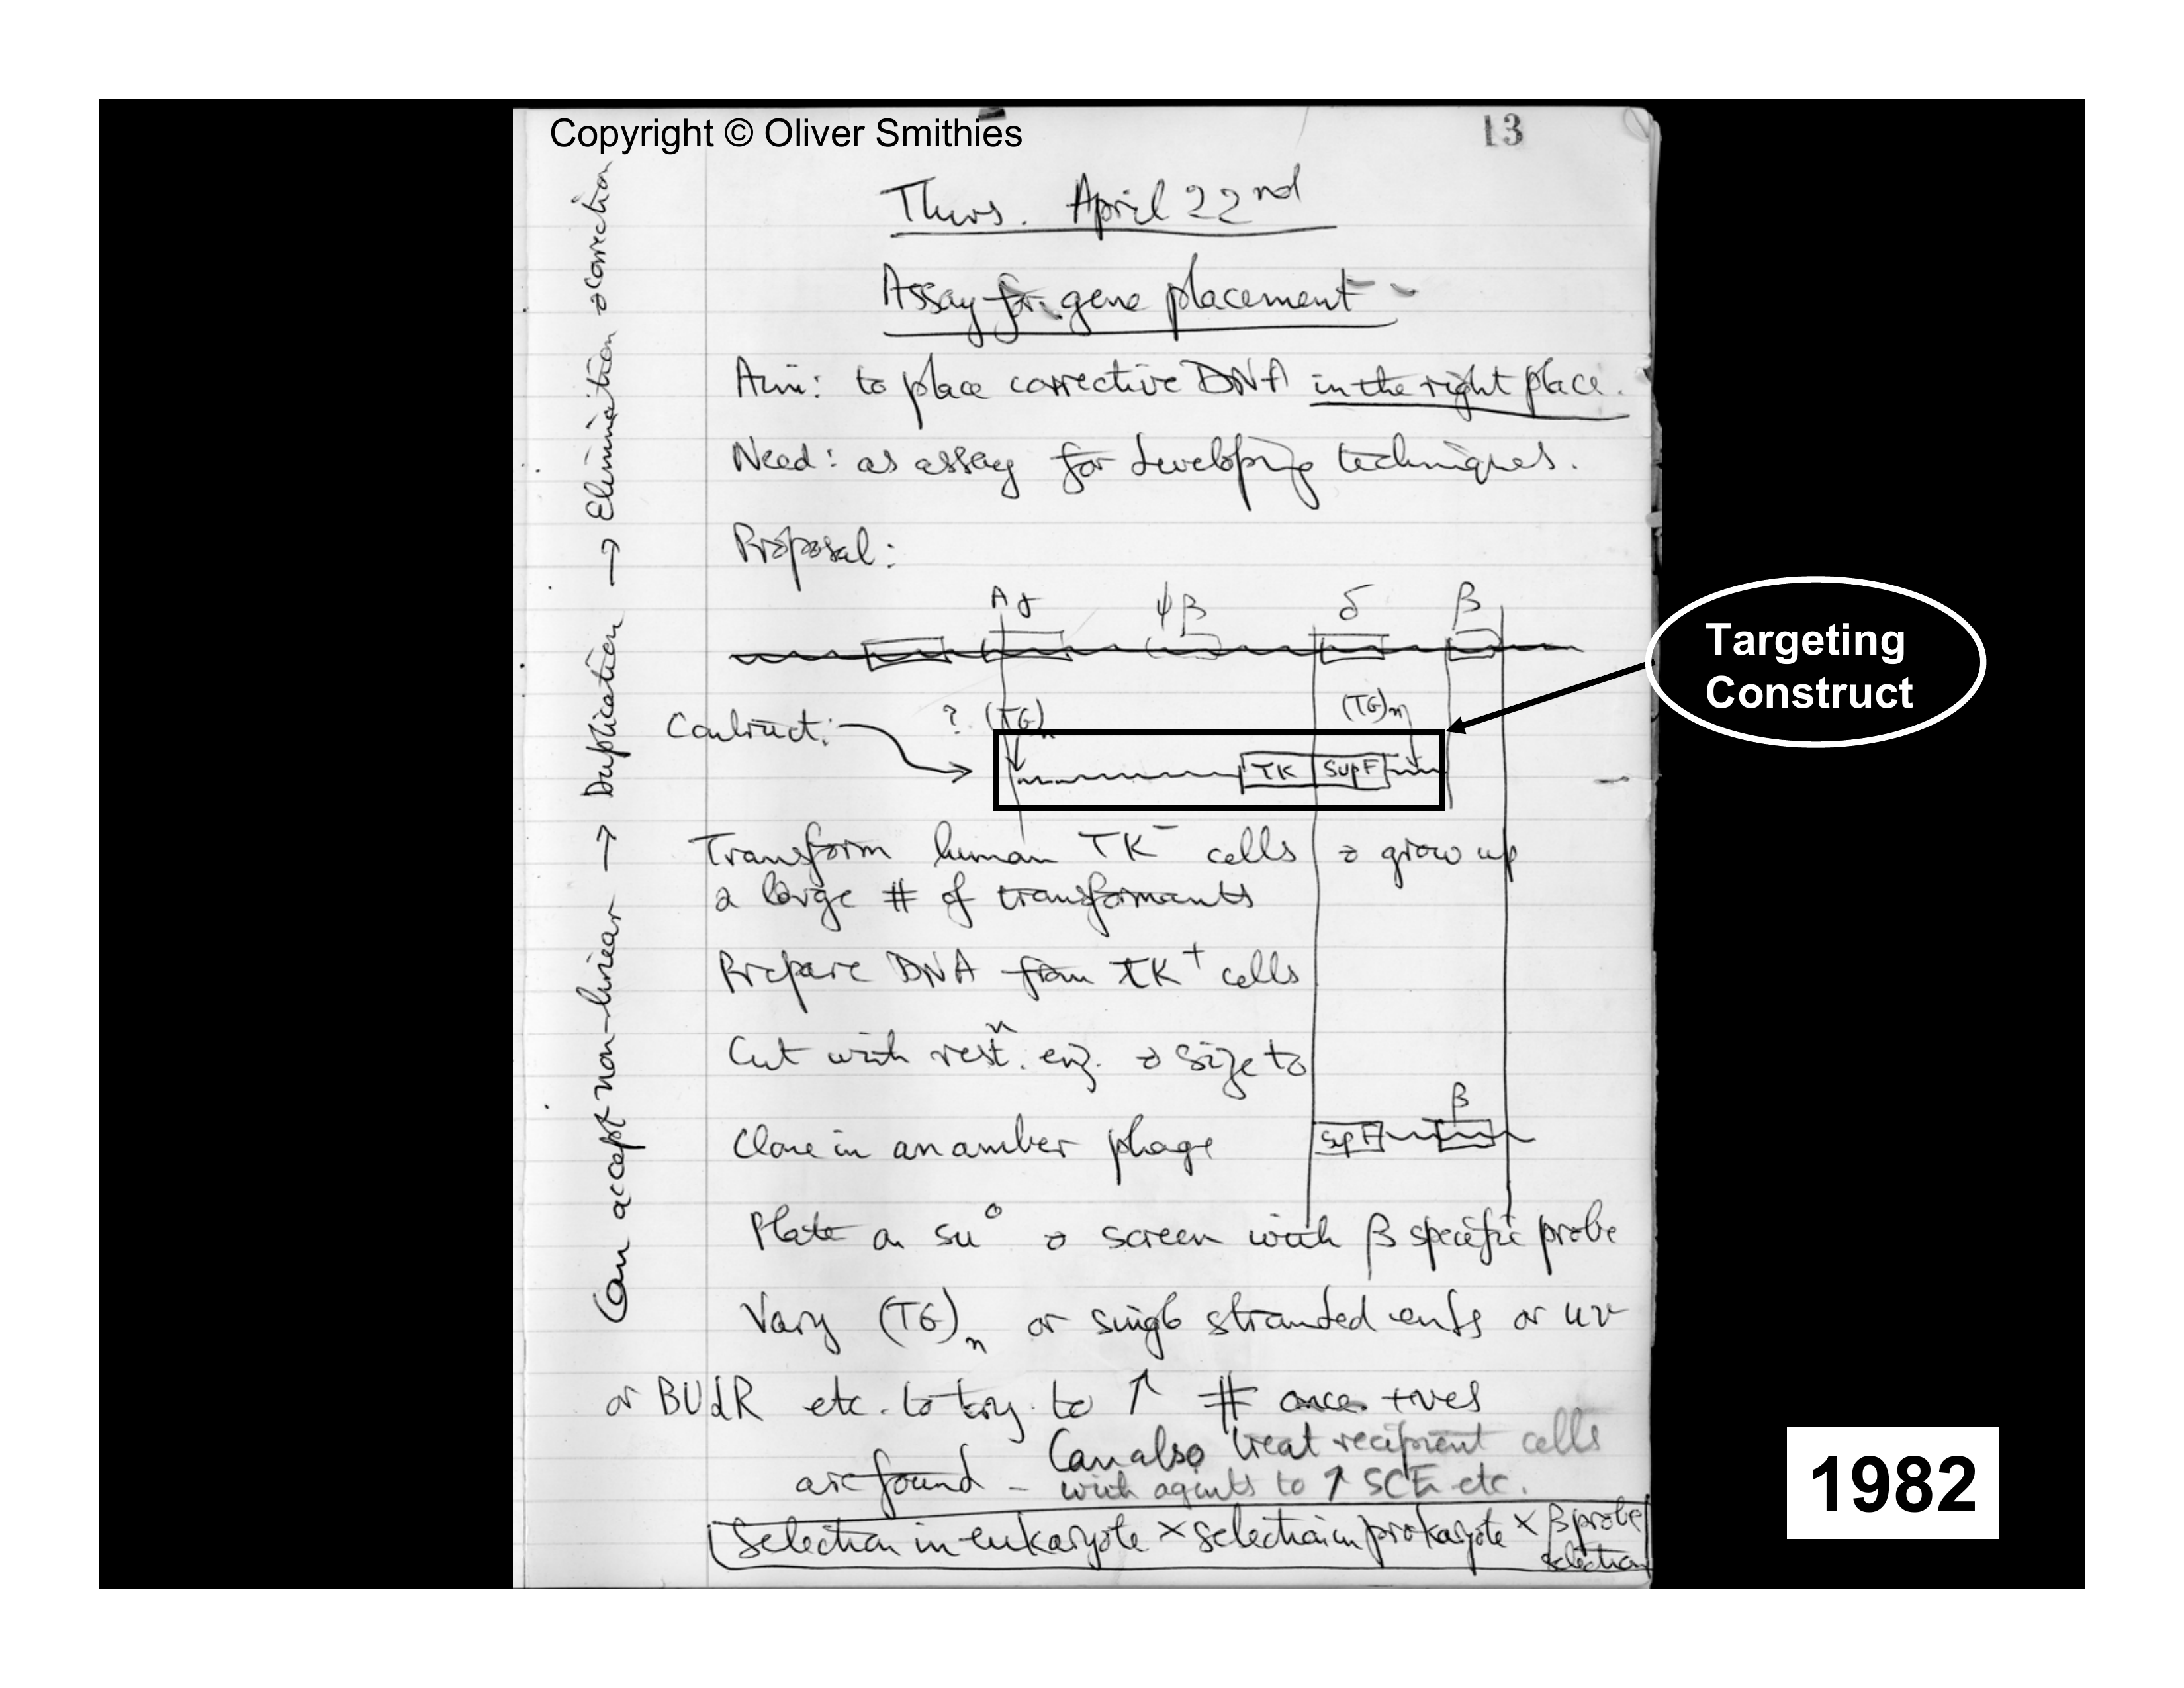 Copyright © Oliver Smithies
13
Thurs. April 22nd
Assay for gene placement
Aim: to place corrective DNA in the right place.
Need: as assay for developing techniques.
Proposal:
Aγ ψβ δ β
Construct: ? (TG)n (TG)n
TK SupF
Targeting
Construct
Transform human TK⁻ cells & grow up
a large # of transformants
Prepare DNA from TK⁺ cells
Cut with restn. enz. & size to
β
Clone in an amber phage SupF
Plate on su° & screen with β specific probe
Vary (TG)n or single stranded ends or uv
or BUdR etc. to try to ↑ # +ves
are found – Can also treat recipient cells
with agents to ↑ SCE etc.
Selection in eukaryote × selection in prokaryote × β probe
selection
Can accept non-linear → Duplication → Elimination & correction
1982